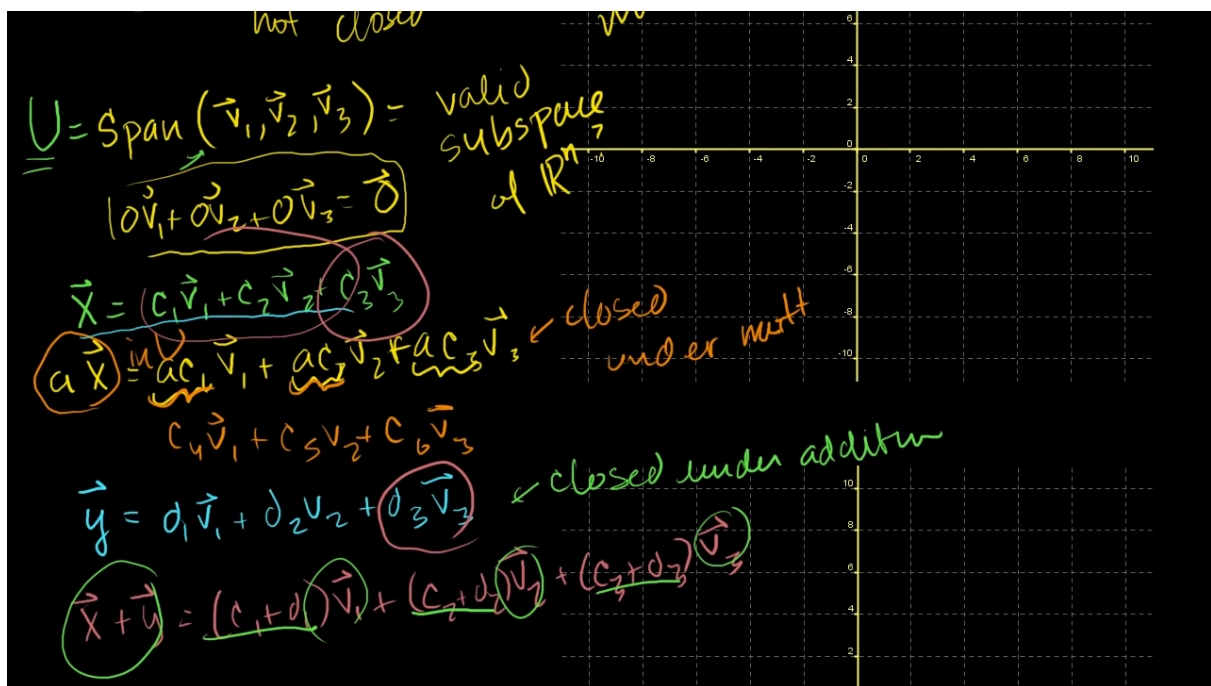 not closed
U = Span (v⃗₁, v⃗₂, v⃗₃) = valid
subspace
of ℝⁿ?
0v⃗₁ + 0v⃗₂ + 0v⃗₃ = 0⃗
x⃗ = c₁v⃗₁ + c₂v⃗₂ + c₃v⃗₃
ax⃗ = ac₁v⃗₁ + ac₂v⃗₂ + ac₃v⃗₃ ← closed
in U
under mult
c₄v⃗₁ + c₅v₂ + c₆v⃗₃
y⃗ = d₁v⃗₁ + d₂v₂ + d₃v⃗₃
← closed under addition
x⃗ + y⃗ = (c₁+d₁)v⃗₁ + (c₂+d₂)v⃗₂ + (c₃+d₃)v⃗₃
6
4
2
0
-10 -8 -6 -4 -2 0 2 4 6 8 10
-2
-4
-6
-8
-10
10
8
6
4
2